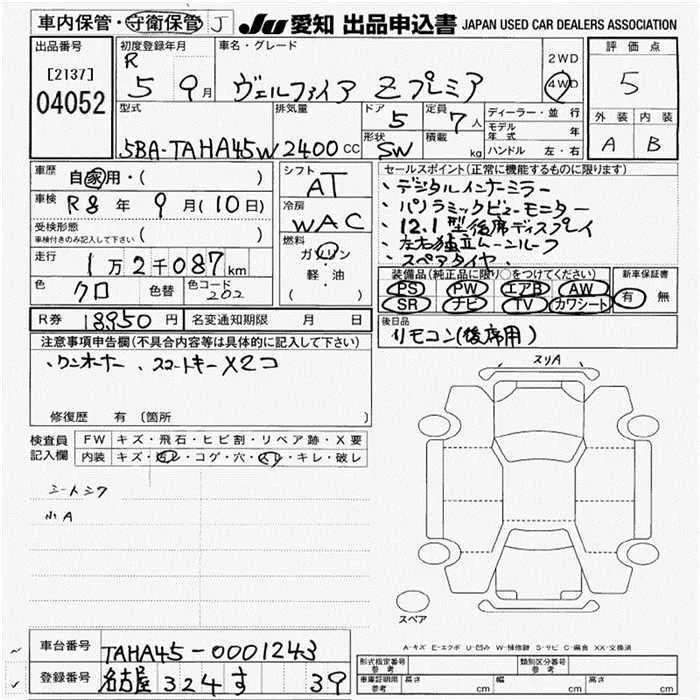 車内保管・守衛保管 J JU 愛知 出品申込書 JAPAN USED CAR DEALERS ASSOCIATION
出品番号
[2137]
04052
初度登録年月
R 5 9月
車名・グレード
ヴェルファイア Zプレミア
2WD
4WD
評価点
5
外装 内装
A B
型式
5BA-TAHA45W
排気量
2400 CC
ドア
5
形状
SW
定員
7人
積載
kg
ディーラー・並行
モデル年式 年
ハンドル 左・右
車歴
自家用・( )
車検
R8年 9月(10日)
受検形態
車検付きのみ記入して下さい ( )
走行
1万2千087km
色
クロ
色替
色コード
202
シフト
AT
冷房
WAC
燃料
ガソリン
軽・油
( )
セールスポイント(正常に機能するものに限ります)
・デジタルインナーミラー
・パノラミックビューモニター
・12.1型後席ディスプレイ
・左右独立ムーンルーフ
・スペアタイヤ、
装備品(純正品に限り○をつけてください)
PS PW エアB AW
SR ナビ TV カワシート
新車保証書
有 無
R券 18950円 名変通知期限 月 日
後日品
リモコン(後席用)
注意事項申告欄(不具合内容等は具体的に記入して下さい)
、ワンオーナー 、スマートキー×2コ
修復歴 有 (箇所 )
検査員記入欄
FW キズ・飛石・ヒビ割・リペア跡・X要
内装 キズ・汚レ・コゲ・穴・スレ・キレ・破レ
シートシワ
小A
スリA
スペア
A-キズ E-エクボ U-凹み W-補修跡 S-サビ C-腐食 XX-交換済
車台番号
TAHA45-0001243
登録番号
名古屋 324 す 39
形式指定番号 参考
類別区分番号 参考
車庫証明用 参考
長さ cm 幅 cm 高さ cm